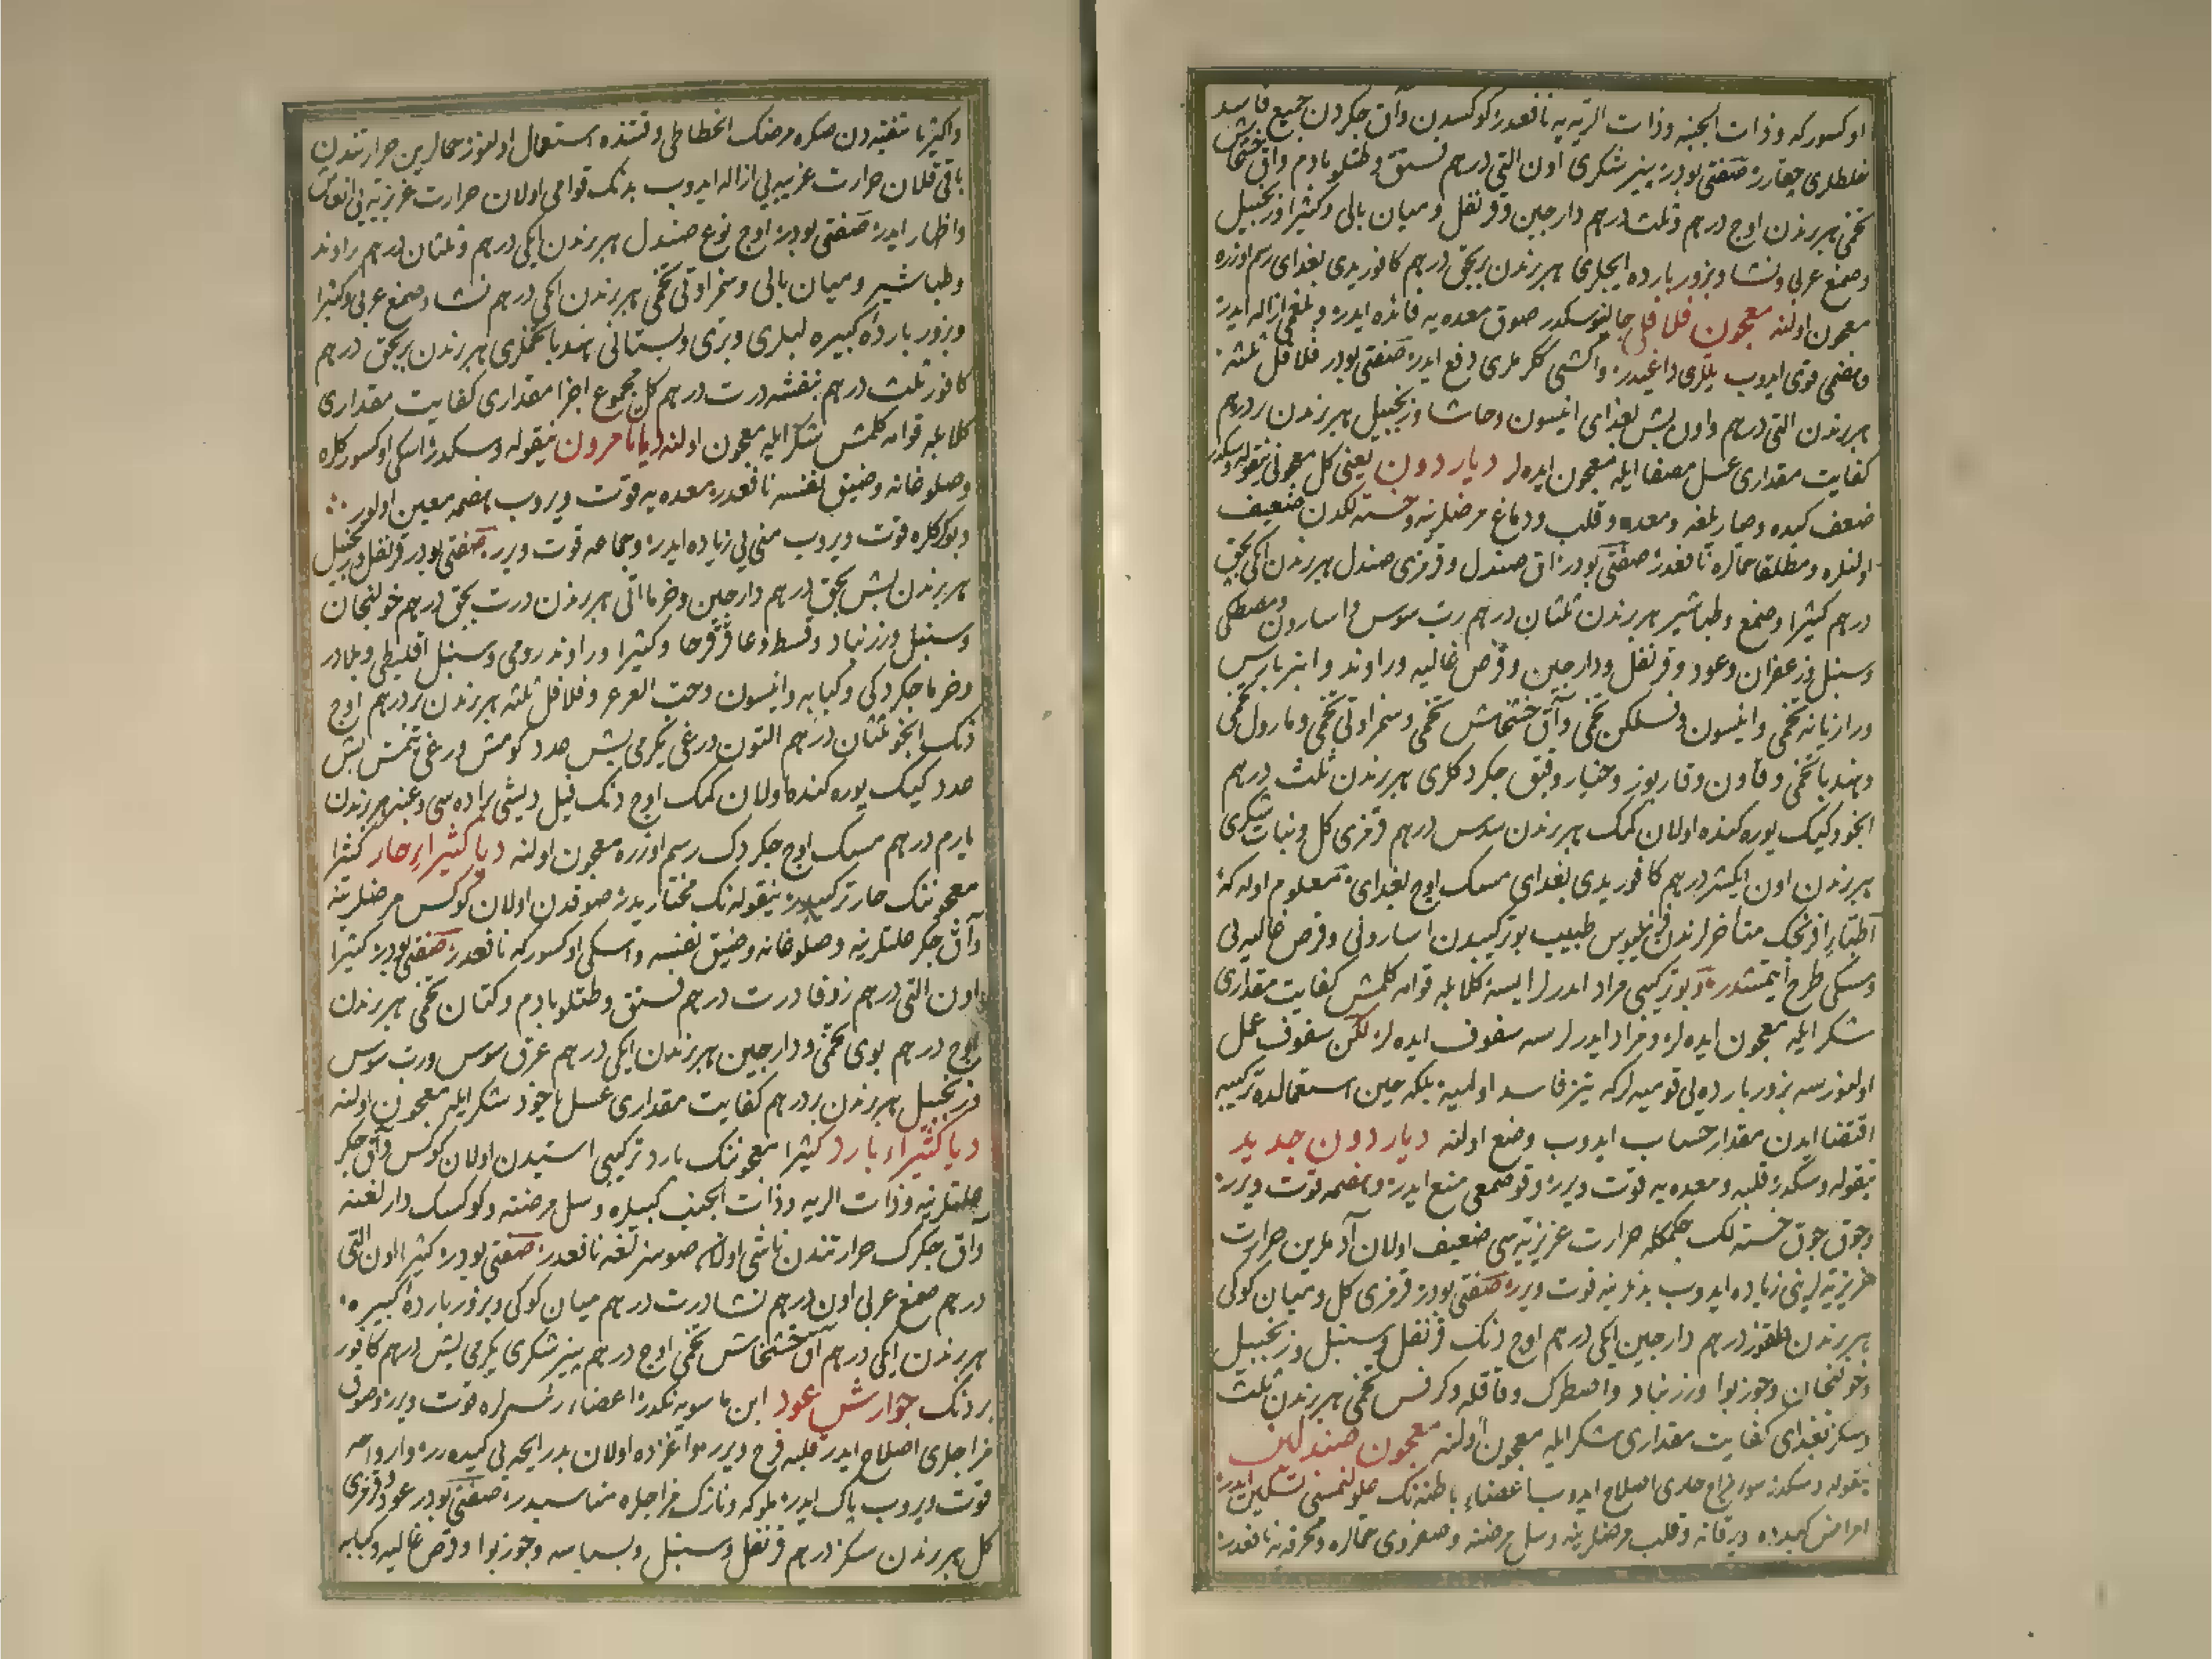 اوكسوركه وذات الجنبه وذات الريه يه نافعدر كوكسدن وآق جكردن جميع فاسد
غلطلرى چقارر صنفتى بودر پنير شكرى اون التى درهم فستق وطتلو بادم وآق خشخاش
تخمى هر برندن اوچ درهم وثلث درهم دارجين وقرنفل وميان بالى وكثيرا وزنجبيل
وصمغ عربى ونشا وبزور بارده ايچلرى هر برندن بر بچق درهم كافور يدى بغداى رسم اوزره
معجون اولنه معجون فلافلى جالينوسكدر صوق معده يه فائده ايدر وبلغمى ازاله ايدر
وهضمى قوى ايدوب يللرى داغيدر واكشى ككرملرى دفع ايدر صنفتى بودر فلافل ثلثه
هر برندن التى درهم واون بش بغداى انيسون وحاشا وزنجبيل هر برندن بر درهم
كفايت مقدارى عسل مصفا ايله معجون ايده لر دياردون يعنى كل معجونى نيقوله وسكدر
ضعف كبده وحار بلغمه ومعده وقلب ودماغ مرضلرينه وخسته لكدن ضعيف
اولنلره ومطلقا حمالره نافعدر صنفتى بودر آق صندل وقرمزى صندل هر برندن ايكى بچق
درهم كثيرا وصمغ وطباشير هر برندن ثلثان درهم رب سوس واسارون ومصطكى
وسنبل وزعفران وعود وقرنفل ودارجين وقرص غاليه وراوند وانبرباريس
ورازيانه تخمى وانيسون وفسلكن تخمى وآق خشخاش تخمى وسمزاوتى تخمى ومارول تخمى
وهندبا تخمى وقاون وقاربوز وخيار وقبق جكردكلرى هر برندن ثلث درهم
انجو وكيك يوره كنده اولان كمك هر برندن سدس درهم قرمزى كل ونبات شكرى
هر برندن اون ايكيشر درهم كافور يدى بغداى مسك اوچ بغداى معلوم اوله كه
اطباء افرنجك متأخرلرندن طبيب بو تركيبدن اسارونى وقرص غاليه يى
ومسكى طرح ايتمشدر وبو تركيبى مراد ايدرلر ايسه كلابله قوامه كلمش كفايت مقدارى
شكر ايله معجون ايده لر ومراد ايدرلرسه سفوف ايده لر لكن سفوف عمل
اولنورسه بزور بارده يى قوميه لر كه تيز فاسد اولميه بلكه حين استعمالده تركيبه
اقتضا ايدن مقدار حساب ايدوب وضع اولنه دياردون جديد
نيقوله وسكدر قلبه ومعده يه قوت ويرر وقوصمغى منع ايدر وهضمه قوت ويرر
وچوق چوق خسته لك چكمكله حرارت غريزيه سى ضعيف اولان آدملرين حرارت
غريزيه لرينى زياده ايدوب بدنلرينه قوت ويرر صنفتى بودر قرمزى كل وميان كوكى
هر برندن طقوز درهم دارجين ايكى درهم اوچ دنك قرنفل وسنبل وزنجبيل
وخولنجان وجوزبوا وزرنباد واصطرك وقاقله وكرفس تخمى هر برندن ثلث
وسكز بغداى كفايت مقدارى شكر ايله معجون اولنه معجون صندلين
نيقوله وسكدر سوء مزاج حارى اصلاح ايدوب اعضاء باطنه نك صولنمسنى تسكين ايدر
امراض كبده ويرقانه وقلب مرضلرينه وسل مرضنه وصفروى حمالره ومحرقه يه نافعدر
واكثريا تنقيه دن صكره مرضك انحطاطى وقتنده استعمال اولنور حمالرين حرارتندن
باقى قلان حرارت غريبه يى ازاله ايدوب بدنك قوامى اولان حرارت غريزيه يى انعاش
واظهار ايدر صنفتى بودر اوچ نوع صندل هر برندن ايكى درهم وثلثان درهم راوند
وطباشير وميان بالى وسمزاوتى تخمى هر برندن ايكى درهم نشا وصمغ عربى وكثيرا
وبزور بارده كبيره لبلرى وبرى وبستانى هندبا تخملرى هر برندن بر بچق درهم
كافور ثلث درهم بنفشه درت درهم كل مجموع اجزا مقدارى كفايت مقدارى
كلابله قوامه كلمش شكر ايله معجون اولنه ديانامرون نيقوله وسكدر اسكى اوكسوركلره
وصلوخانه وضيق نفسه نافعدر معده يه قوت ويروب هضمه معين اولور
وبوكركلره قوت ويروب منى يى زياده ايدر وجماعه قوت ويرر صنفتى بودر قرنفل وزنجبيل
هر برندن بش بچق درهم دارجين وخرما اتى هر برندن درت بچق درهم خولنجان
وسنبل وزرنباد وقسط وعاقرقرحا وكثيرا وراوند رومى وسنبل اقليطى وبلادر
وخرما جكردكى وكبابه وانيسون وحب العرعر وفلافل ثلثه هر برندن بر درهم اوچ
دنك انجو ثلثان درهم التون ورغى يكرمى بش عدد كومش ورغى يتمش بش
عدد كيك يوره كنده اولان كمك اوچ دنك فيل ديشى براده سى وعنبر هر برندن
يارم درهم مسك اوچ جكردك رسم اوزره معجون اولنه دياكثيراء حار كثيرا
معجوننك حار تركيبيدر نيقوله نك مختاريدر صوقدن اولان كوكس مرضلرينه
وآق جكر علتلرينه وصلوخانه وضيق نفسه واسكى اوكسوركه نافعدر صنفتى بودر كثيرا
اون التى درهم زوفا درت درهم فستق وطتلو بادم وكتان تخمى هر برندن
اوچ درهم بوى تخمى ودارجين هر برندن ايكى درهم عرق سوس ورب سوس
وزنجبيل هر برندن بر درهم كفايت مقدارى عسل ياخود شكر ايله معجون اولنه
دياكثيراء بارد كثيرا معجوننك بارد تركيبى استيدن اولان كوكس وآق جكر
علتلرينه وذات الريه وذات الجنب كبيلره وسل مرضنه وكوكسك دارلغنه
وآق جكرك حرارتندن ناشى اولان صوسزلغه نافعدر صنفتى بودر كثيرا اون التى
درهم صمغ عربى اون درهم نشا درت درهم ميان كوكى وبزور بارده كبيره
هر برندن ايكى درهم آق خشخاش تخمى اوچ درهم پنير شكرى يكرمى بش درهم كافور
بر دنك جوارش عود ابن ماسويه نكدر اعضاء رئيسه لره قوت ويرر وصوق
مزاجلرى اصلاح ايدر قلبه فرح ويرر واغزده اولان بد رايحه يى كيدرر وارواحه
قوت ويروب پاك ايدر ملوكه ونازك مزاجلره مناسبدر صنفتى بودر عود وقرمزى
كل هر برندن سكز درهم قرنفل وسنبل وبسباسه وجوزبوا وقرص غاليه وكبابه